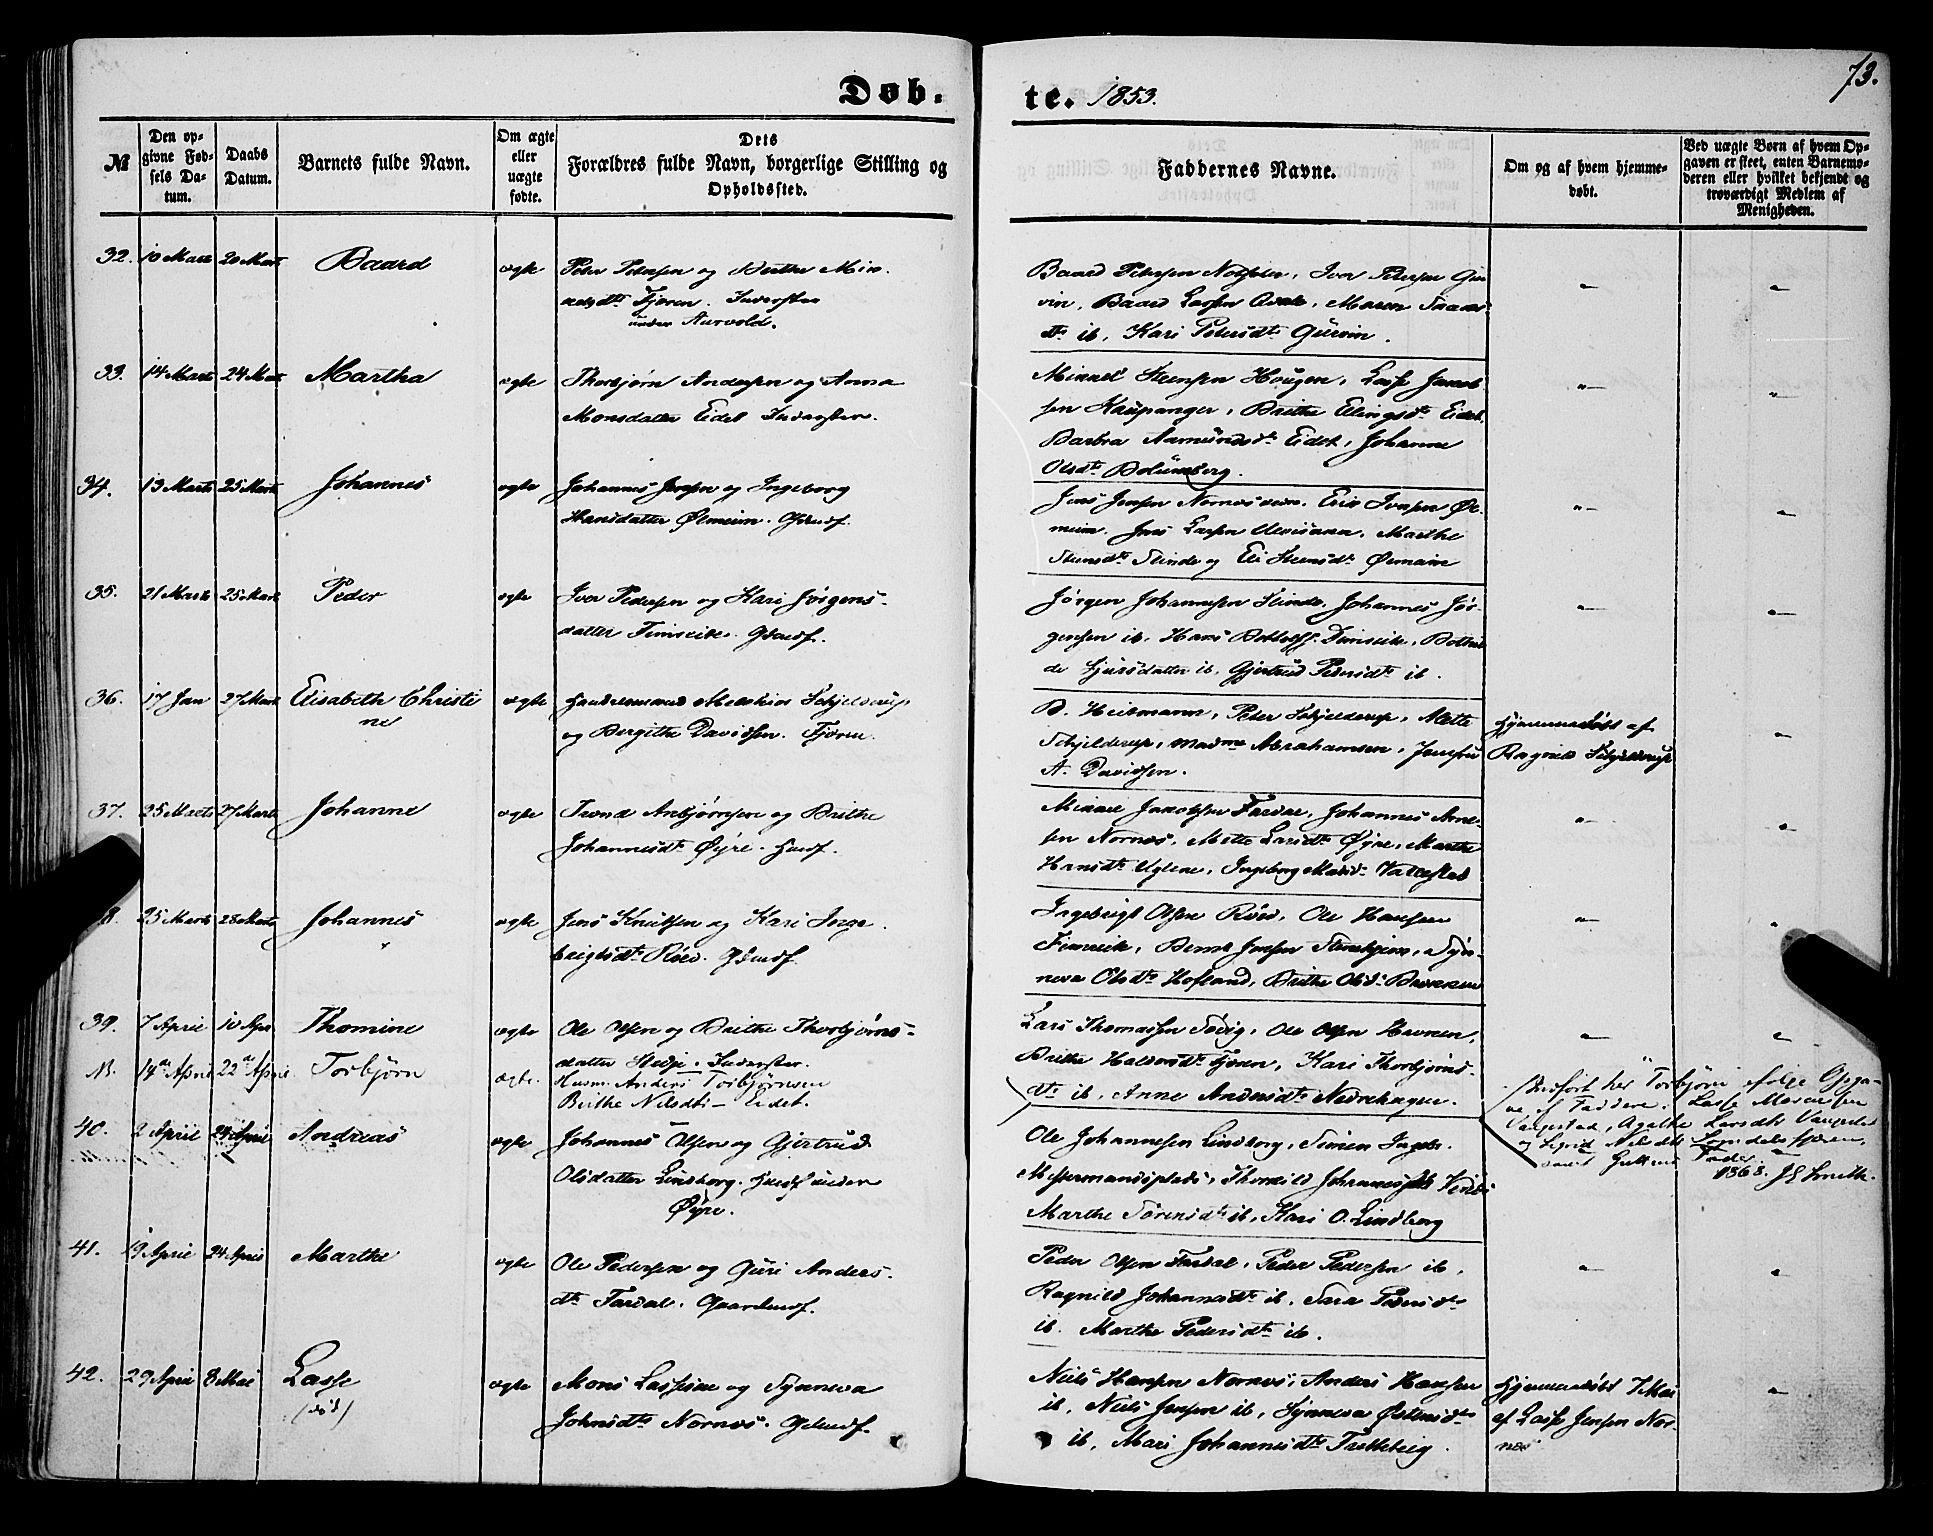 73.
Døb. te. 1853.
№
Den opgivne Fødsels Datum.
Daabs Datum.
Barnets fulde Navn.
Om ægte eller uægte fødte.
Dets
Forældres fulde Navn, borgerlige Stilling og
Opholdssted.
Faddernes Navne.
Om og af hvem hjemmedøbt.
Ved uægte Børn af hvem Opgaven er skeet, enten Barnemoderen eller hvilket bekjendt og troværdigt Medlem af Menigheden.
32. 10 Marts 20 Mart Baard ægte Peter Petersen og Brithe Mik
kelsdtr Fjøren. Inderster
under Aurvold.
Baard Petersen, Iver Petersen Gur
vin, Baard Larsen Qvale, Maren
dtr ib, Kari Petersdtr Gurvin.
33. 14 Marts 24 Mart Martha ægte Thorbjørn Andersen og Anna
Monsdatter Eidet Inderster.
Mikkel Steensen Hougen, Lasse Jacob
sen Kaupanger, Brithe Ellingsdtr Eidet
Barbra Aamundsdtr Eidet, Johanne
Olsdtr
34. 13 Marts 25 Mart Johannes ægte Johannes Jensen og Ingeborg
Hansdatter Ølmeim. Gbmdf.
Jens Jensen, Erik Iversen Øl
meim. Jens Larsen, Marthe
Steensdtr Slinde og Eli Steensdtr Ølmeim
35. 21 Marts 25 Mart Peder ægte Iver Pedersen og Kari Jørgens-
datter Timreite. Gbmdf.
Jørgen Johannesen Slinde, Johannes Jør-
gensen ib, Hans Botolfs. Timreite, Bothil
de Sjursdatter ib, Gjertrud Pedersdtr ib.
36. 17 Jan 27 Mart Elisabeth Christi
ne
ægte Handelsmand Schjelderup
og Bergithe Davidsen. Fjøren.
D. Heibmann, Peter Schjelderup, Mette
Schjelderup, Madme Abrahamsen, Jomfru
A. Davidsen.
Hjemmedøbt af
Ragnild Schjelderup
37. 25 Marts 27 Mart Johanne ægte Trond Asbjørnsen og Brithe
Johannesdtr Øyre. Husmf.
Mikkel Jacobsen Fardal, Johannes Arne-
sen Nornes, Mette Larsdtr Øyre, Marthe
Hansdtr Uglene, Ingeborg Vallestad
38. 25 Marts 28 Marts Johannes ægte Jens Knutsen og Kari Inge
brigtsdtr Røed. Gbmdf.
Ingebrigt Olsen Røed, Ole Hansen
Timreite, Bernt Jensen, Syn-
neva Olsdtr Hofland, Brithe Olsdtr Brekken
39. 7 April 10 Apr Thomine ægte Ole Olsen og Brithe Thorbjørns-
datter Stedje. Inderster.
Lars Thomassen Søvig, Ole Olsen Havnen,
Brithe Haldorsdtr Fjøren, Kari Thorbjørnsd
dtr ib, Anne Andersdtr Nedrehagen.
N. 14de April 22de April Torbjørn ægte. Husm. Anders Torbjørnsen
Brithe Nilsdtr – Eidet.
Indført her "Torbjørn" ifølge Opga-
ve af Faddere: Lasse
Vangestad, Agathe Larsdtr
og Sigrid Nilsdtr Sogndalsfjøren,
samt Guttens Fader.
1868. J E Smith.
40. 2 April 24 April Andreas ægte Johannes Olsen og Gjertrud
Olsdatter Lindborg. Husmf under
Øyre.
Ole Johannesen Lindborg, Simen Ingebr.
Thorkild Johannesen
Marthe Sørensdtr ib, Kari O. Lindborg
41. 19 April 24 April Marthe ægte Ole Pedersen og Guri Anders
dtr Fardal. Gaardmdf.
Peder Olsen Fardal, Peder Pedersen ib,
Ragnild Johannesdtr ib, Sara Pedersdtr
ib. Marthe Pedersdtr ib.
42. 29 April 8 Mai Lasse
(død)
ægte Mons Lassesen og Synneva
Johnsdtr Nornes. Gbmdf.
Niels Hansen Nornes, Anders Hansen
ib, Niels Jensen ib, Synneva
ib, Mari Johannesdtr
Hjemmedøbt 7 Mai
af Lasse Jensen Nor-
nes